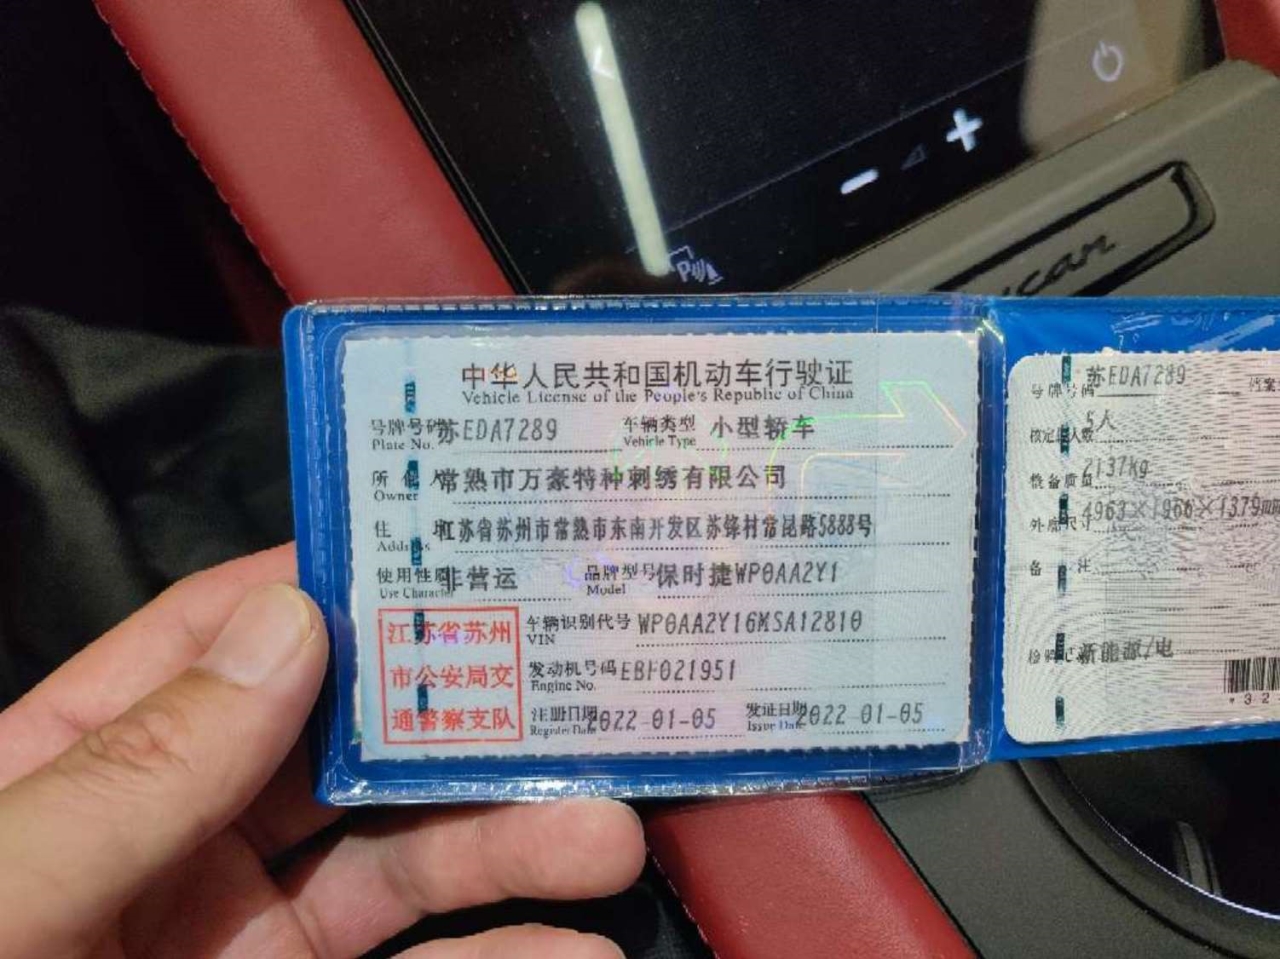 中华人民共和国机动车行驶证
Vehicle License of the People's Republic of China
号牌号码 苏EDA7289 车辆类型 小型轿车
Plate No. Vehicle Type
所有人 常熟市万豪特种刺绣有限公司
Owner
住址 江苏省苏州市常熟市东南开发区苏锋村常昆路5888号
Address
使用性质 非营运 品牌型号 保时捷WP0AA2Y1
Use Character Model
江苏省苏州
市公安局交
通警察支队
车辆识别代号 WP0AA2Y16MSA12810
VIN
发动机号码 EBF021951
Engine No.
注册日期 2022-01-05 发证日期 2022-01-05
Register Date Issue Date
号牌号码 苏EDA7289 档案
核定载人数 5人
整备质量 2137kg
外廓尺寸 4963×1966×1379mm
备注
检验记录 新能源/电
*32